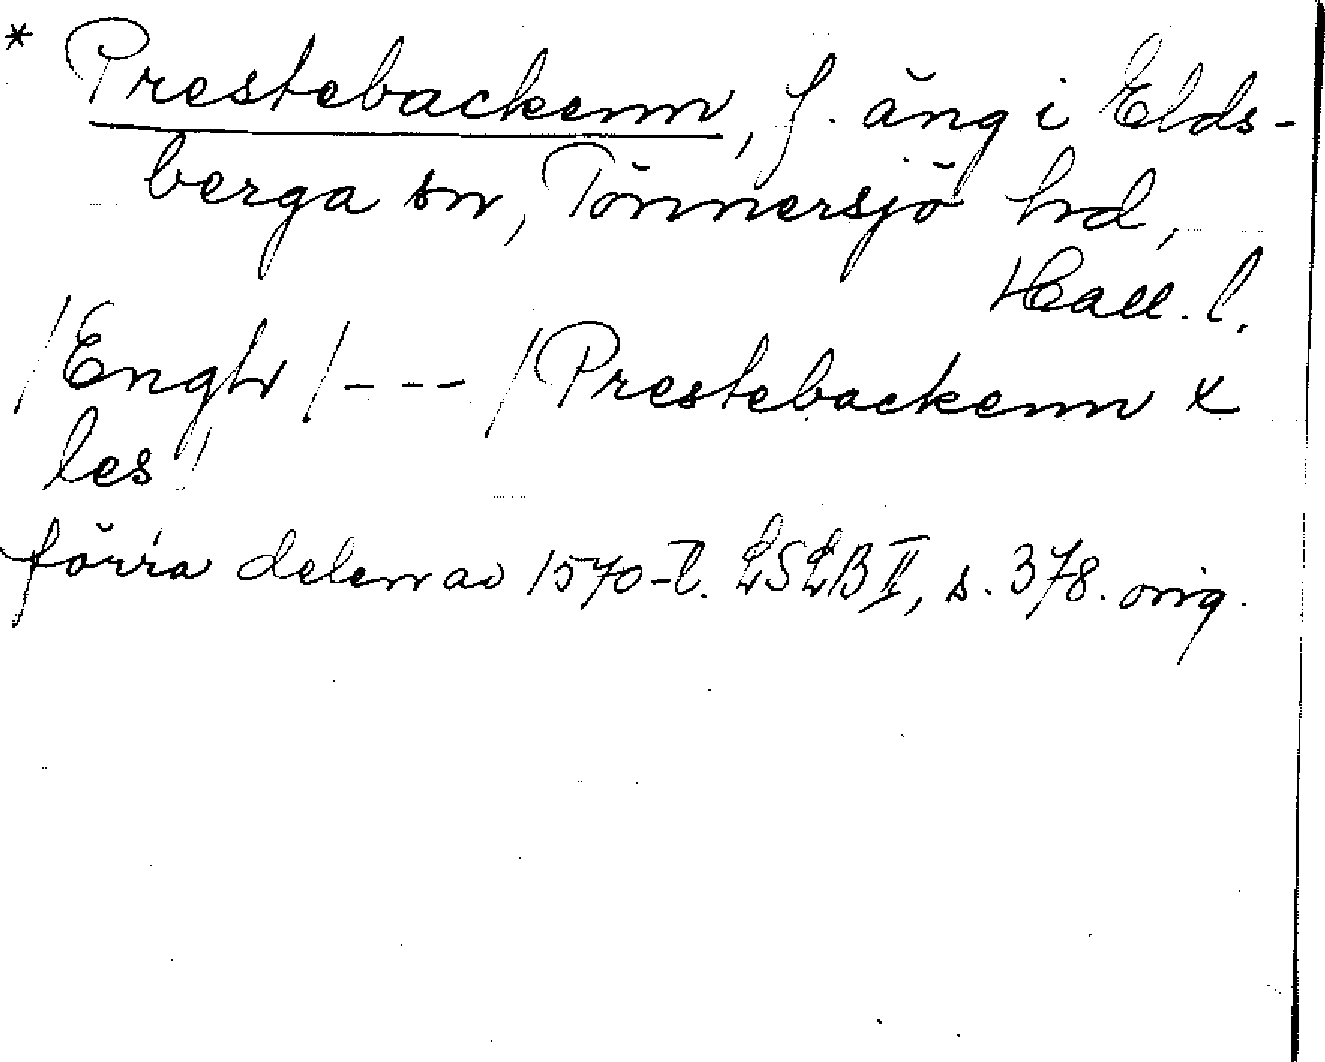 * Prestebackenn, f. äng i Elds-
berga sn, Tönnersjö hd,
Hall. l.
/Engh/ - - - /Prestebackenn x
les/
förra delen av 1570-t. LSLB II, s. 378. orig.